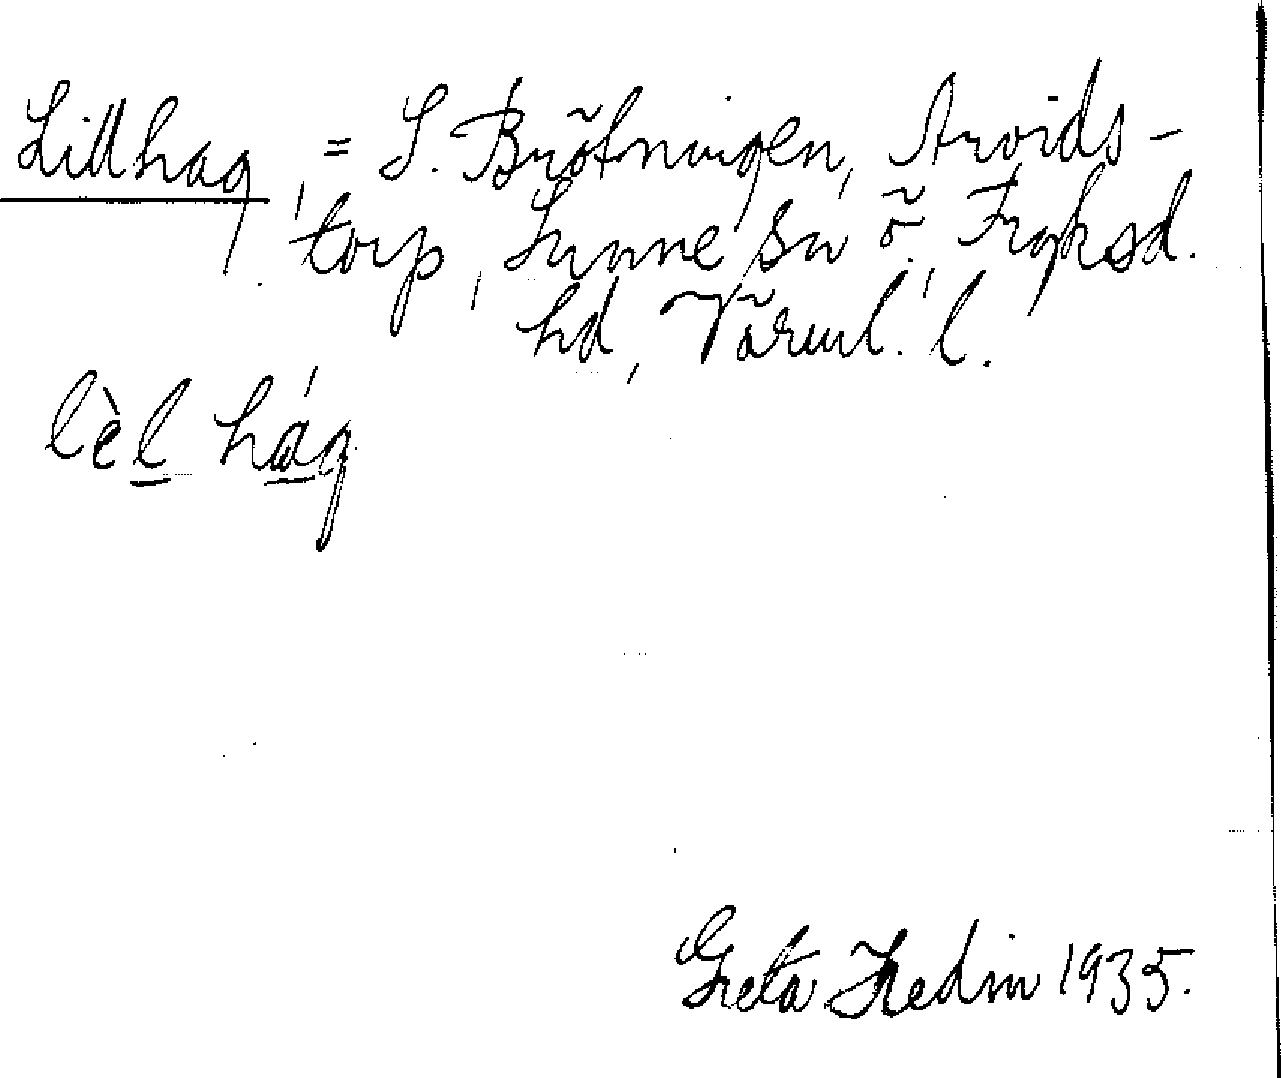 Lillhag, = S. Bråtningen, Arvids-
torp, Sunne sn o. Fryksd.
hd, Värml. l.
lèl hág
Greta Hedin 1935.